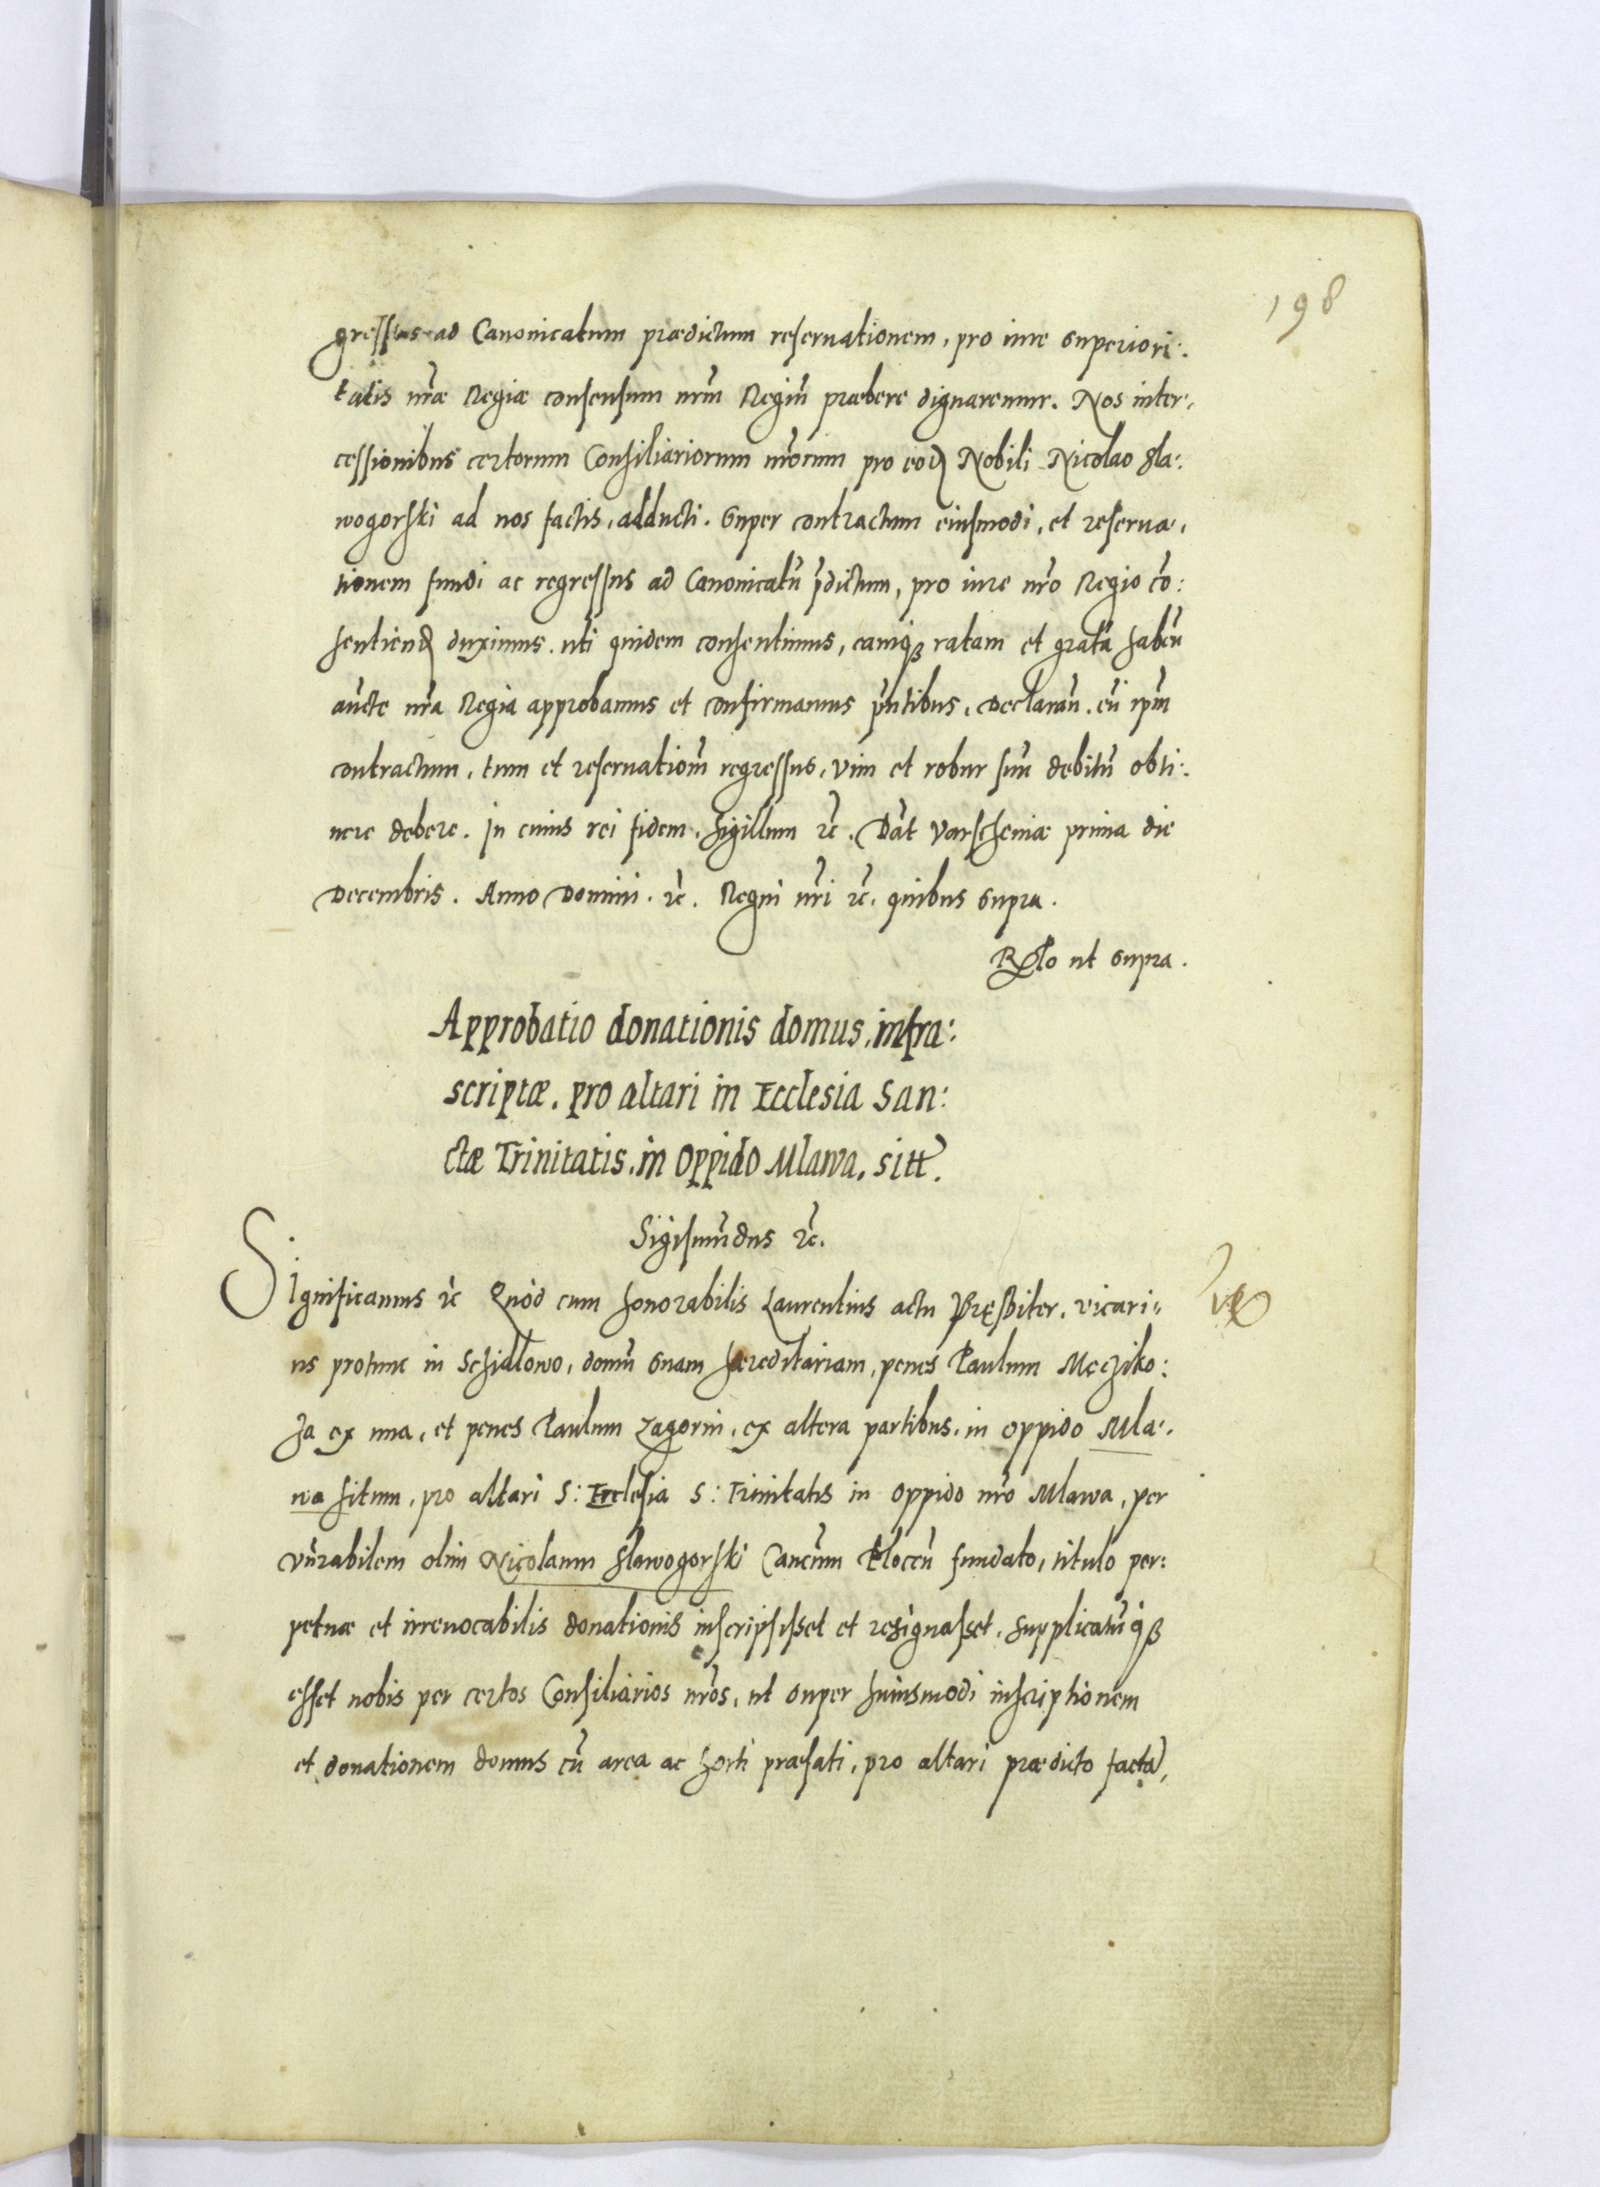 198
gressus ad Canonicatum prædictum reseruationem, pro iure superiori:
tatis nr̃æ Regiæ consensum nr̃m Regiũ præbere dignaremur. Nos inter:
cessionibus certorum Consiliariorum nr̃orum pro eod Nobili Nicolao Sla:
wogorski ad nos factis, adducti. Super contractum eiusmodi, et reserua:
tionem fundi ac regressus ad Canonicatũ p̃dictum, pro iure nr̃o Regio cõ:
sentiend duximus. uti quidem consentimus, eamqꝫ ratam et gratã habeñ
aũcte nr̃a Regia approbamus et confirmamus p̃ntibus. Declarañ. eũ ip̃m
contractum, tum et reseruationẽ regressus, vim et robur suũ debitũ obti:
nere debere. In cuius rei fidem. Sigillum ꝛc̃. Dãt Varscheuiæ prima die
Decembris. Anno Domini. ꝛc̃. Regni nr̃i ꝛc̃. quibus supra.
Rẽlo ut supra.
Approbatio donationis domus, infra:
scriptæ. pro altari in Ecclesia San:
ctæ Trinitatis. in Oppido Mlawa. sitt̃.
Sigismũdus ꝛc̃.
Significamus ꝛc̃ Quòd cum honorabilis Laurentius actu Pręsbiter. vicari:
us protunc in Schidlowo, domũ suam hæreditariam, penes Paulum Męcziko:
ɜa ex una, et penes Paulum Zagorni, ex altera partibus. in oppido Mla:
wa situm, pro altari S: Ecclesia S: Trinitatis in oppido nr̃o Mlawa, per
vñrabilem olim Nicolaum Slawogorski Cancũm Plocen̄ fundato, titulo per:
petuæ et irreuocabilis donationis inscripsisset et resignasset. supplicatũqꝫ
esset nobis per certos Consiliarios nr̃os, ut super huiusmodi inscriptionem
et donationem domus cũ area ac horti præfati, pro altari prædicto factã,